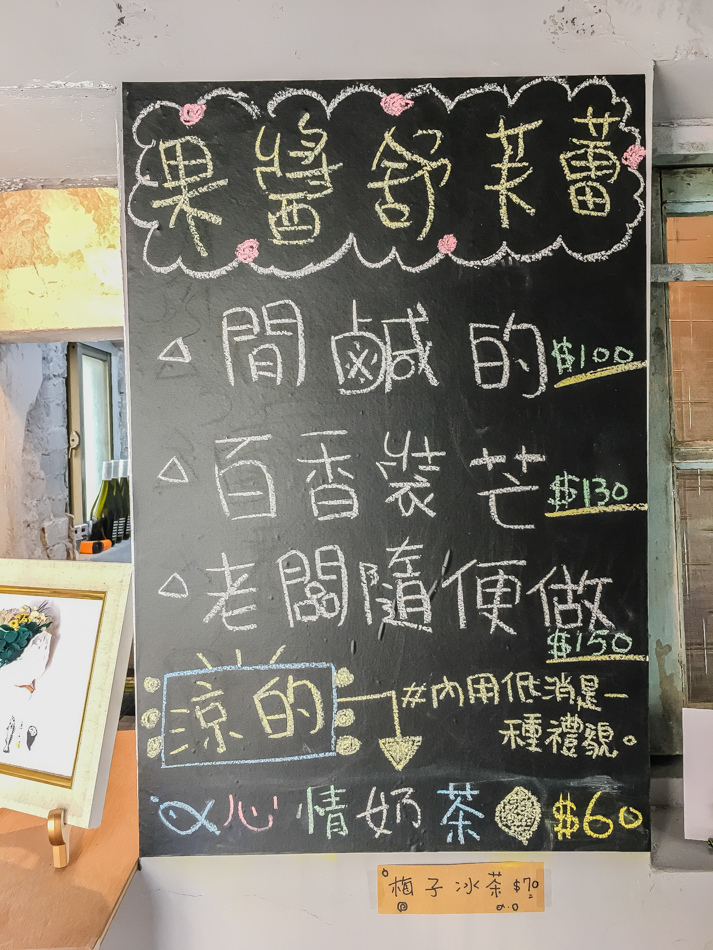 果醬舒芙蕾
間鹹的 $100
百香裝芒 $130
老闆隨便做 $150
涼的
#內用低消是一
種禮貌。
心情奶茶 $60
梅子冰茶 $70